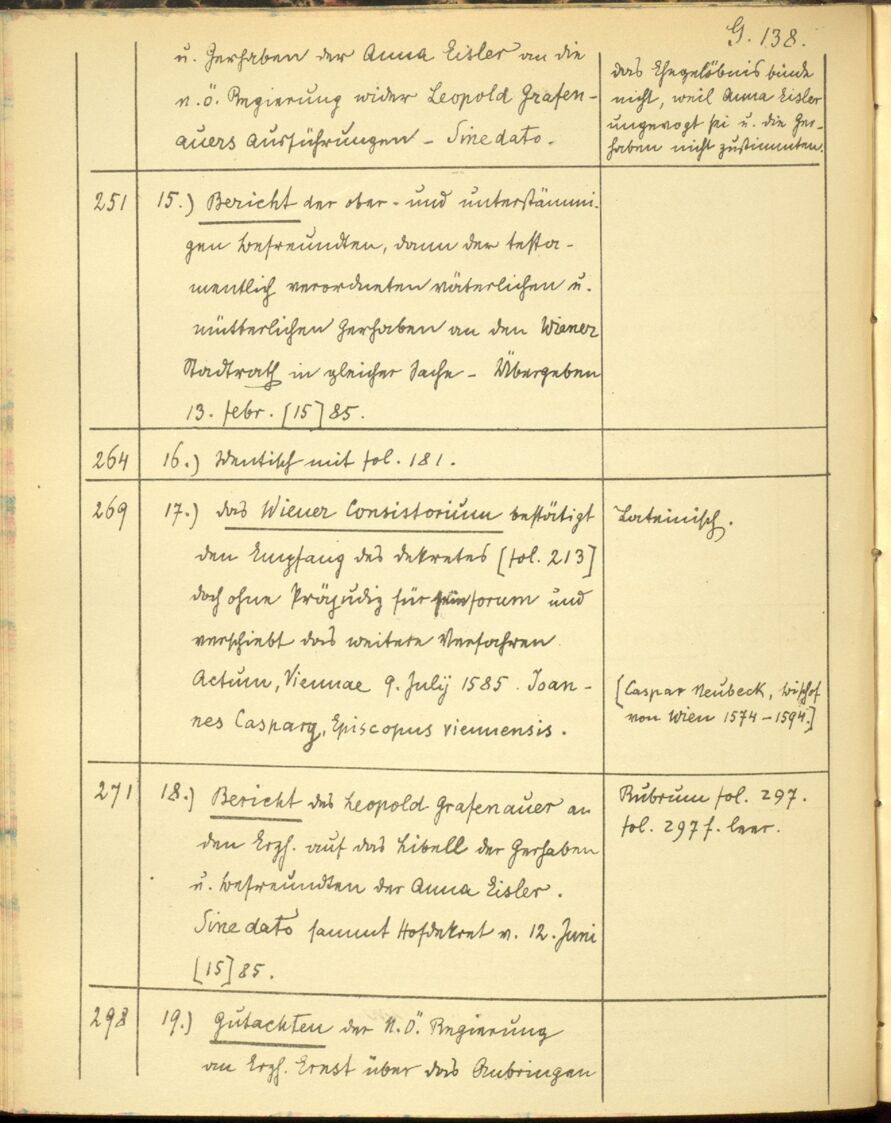 G. 138.
u. Gerhaben der Anna Eisler an die
n. ö. Regierung wider Leopold Grafen-
auers Ausführungen – Sine dato.
das Ehegelöbnis binde
nicht, weil Anna Eisler
ungevogt sei u. die Ger-
haben nicht zustimmten.
251 15.) Bericht der ober- und unterstämmi-
gen Befreundten, dann der testa-
mentlich verordneten väterlichen u.
mütterlichen Gerhaben an den Wiener
Stadtrath in gleicher Sache – Übergeben
13. febr. [15]85.
264 16.) Identisch mit fol. 181.
269 17.) das Wiener Consistorium bestätigt
den Empfang des Dekretes [fol. 213]
doch ohne Präjudiz für sein forum und
verschiebt das weitere Verfahren
Actum, Viennae 9. July 1585. Joan-
nes Caspary, Episcopus viennensis.
Lateinisch.
[Caspar Neubeck, Bischof
von Wien 1574–1594.]
271 18.) Bericht des Leopold Grafenauer an
den Erzh. auf das Libell der Gerhaben
u. Befreundten der Anna Eisler.
Sine dato sammt Hofdekret v. 12. Juni
[15]85.
Rubrum fol. 297.
fol. 297 f. leer.
298 19.) Gutachten der N.Ö. Regierung
an Erzh. Ernst über das Anbringen